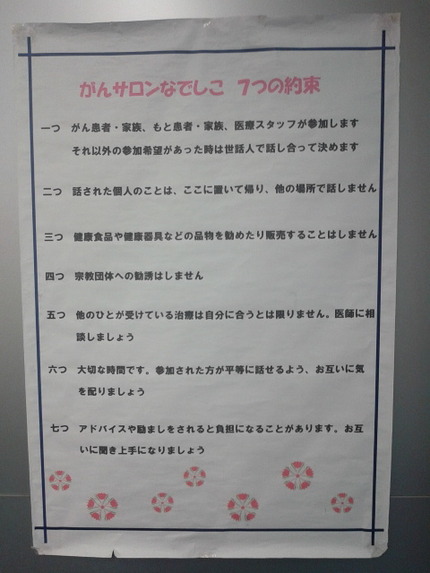 がんサロンなでしこ 7つの約束
一つ がん患者・家族、もと患者・家族、医療スタッフが参加します
それ以外の参加希望があった時は世話人で話し合って決めます
二つ 話された個人のことは、ここに置いて帰り、他の場所で話しません
三つ 健康食品や健康器具などの品物を勧めたり販売することはしません
四つ 宗教団体への勧誘はしません
五つ 他のひとが受けている治療は自分に合うとは限りません。医師に相
談しましょう
六つ 大切な時間です。参加された方が平等に話せるよう、お互いに気
を配りましょう
七つ アドバイスや励ましをされると負担になることがあります。お互
いに聞き上手になりましょう